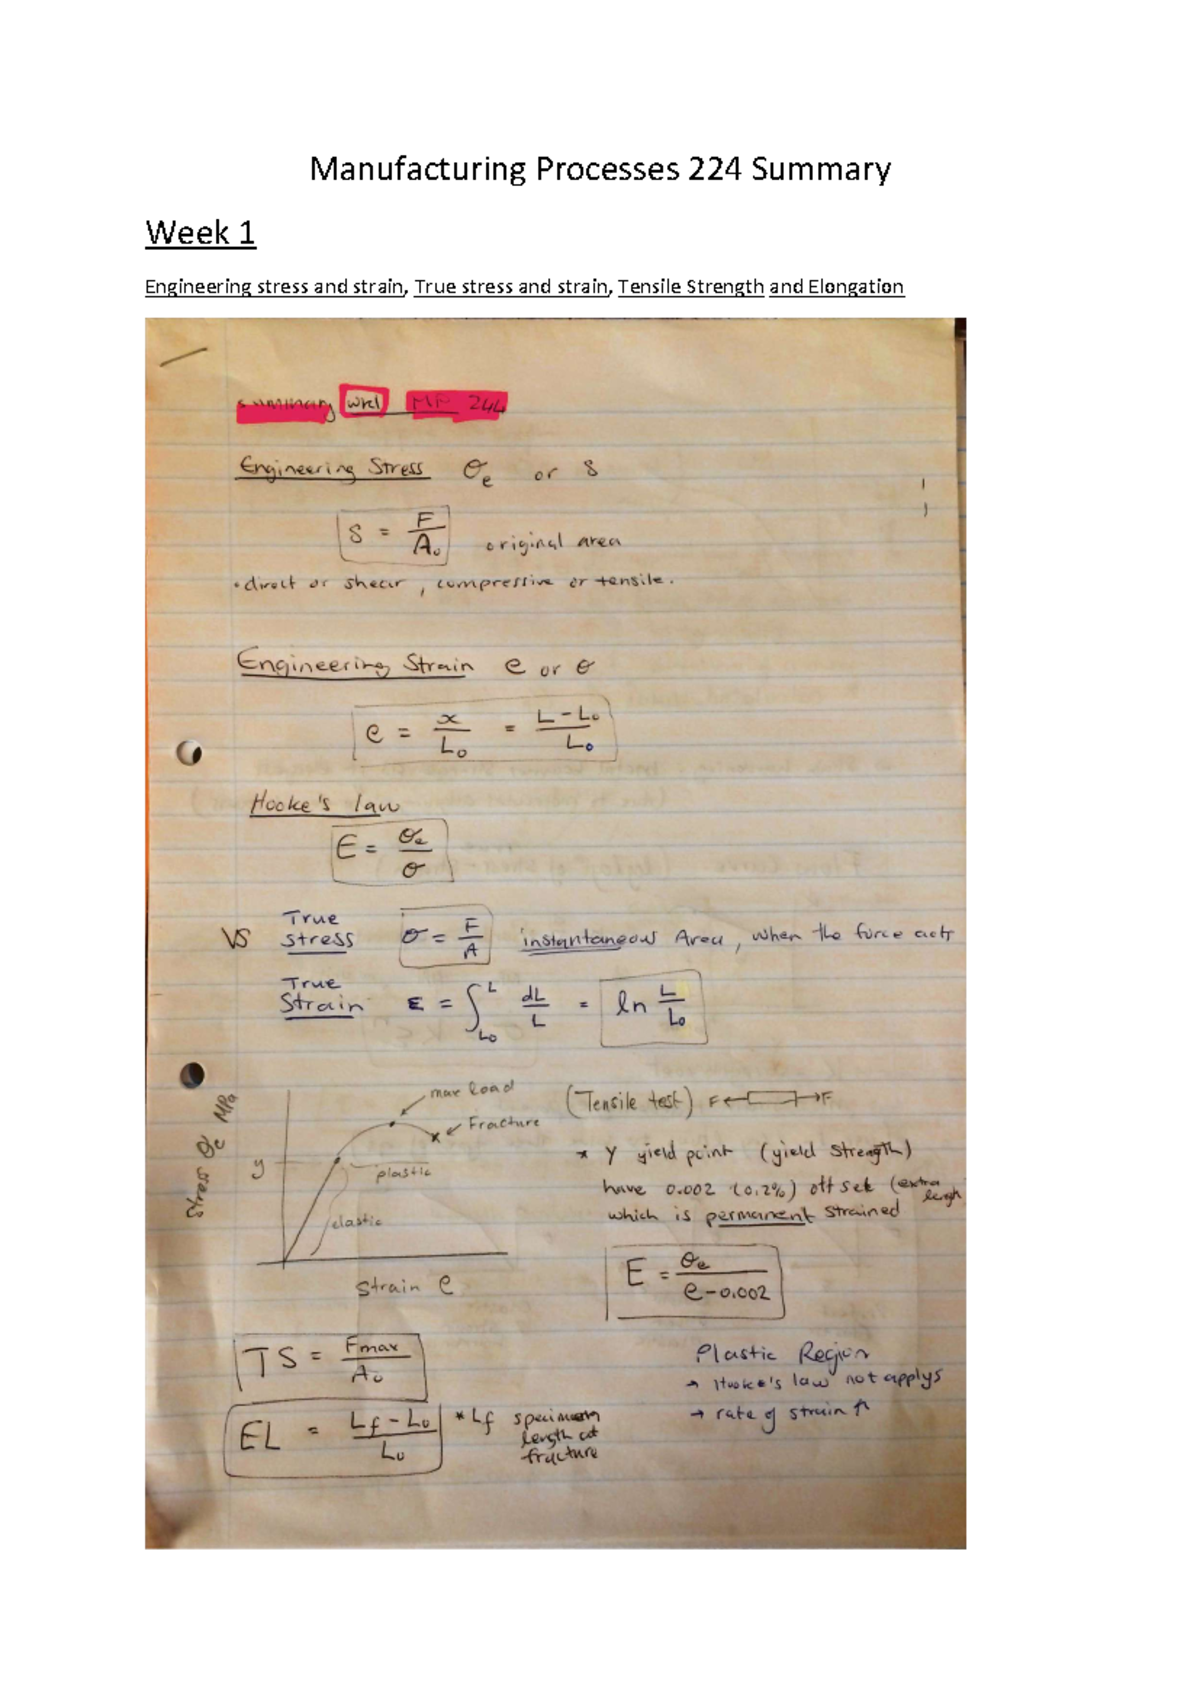 Manufacturing Processes 224 Summary
Week 1
Engineering stress and strain, True stress and strain, Tensile Strength and Elongation
Summary wk1 MP 244
Engineering Stress σe or s
s = F/A₀ original area
• direct or shear, compressive or tensile.
Engineering Strain e or σ
e = x/L₀ = L-L₀/L₀
Hooke's law
E = σe/σ
VS True stress σ = F/A instantaneous Area, when the force acts
True Strain ε = ∫ L L₀ dL/L = ln L/L₀
Stress σe MPa
max load
Fracture
y
plastic
elastic
Strain e
(Tensile test) F F
* Y yield point (yield strength)
have 0.002 (0.2%) offset (extra length
which is permanent strained
E = σe/e-0.002
TS = Fmax/A₀
EL = Lf-L₀/L₀ * Lf specimen
length at
fracture
Plastic Region
→ Hooke's law not applys
→ rate of strain ↑